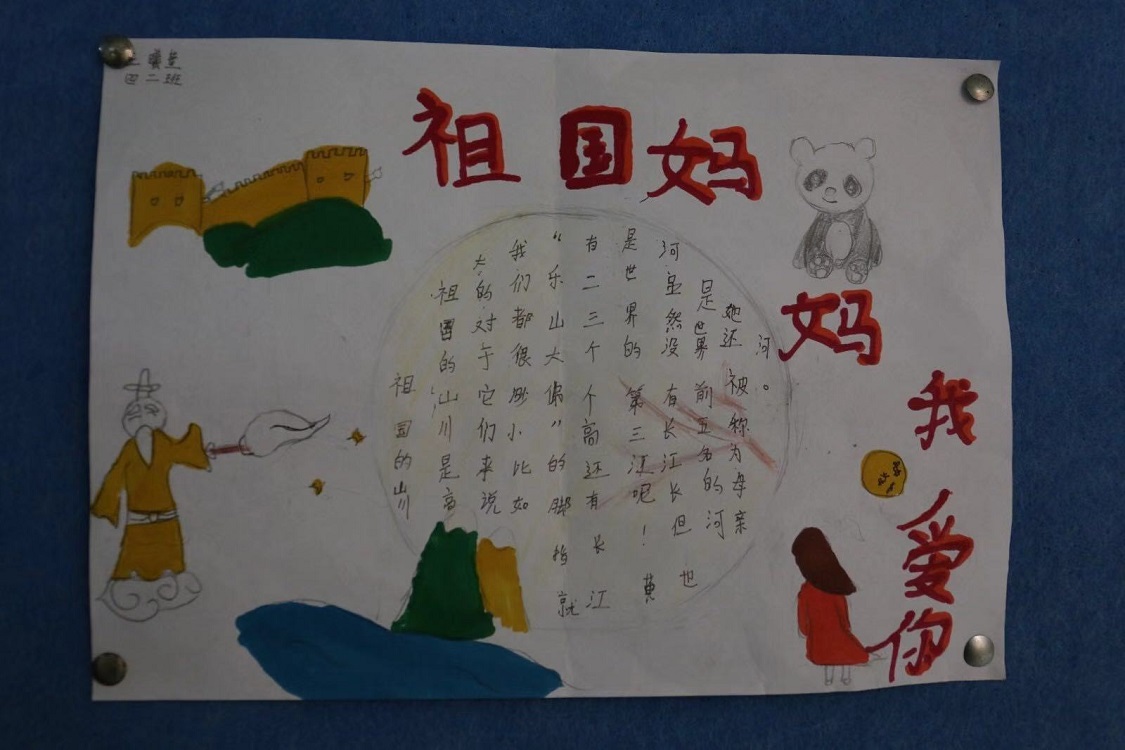 四二班
祖国妈妈我爱你
祖国的山川
祖国的山川是高
大的对于它们来说
我们都很渺小比如
“乐山大佛”的脚指就
有二三个个高还有长江
是世界的第三江呢！黄
河虽然没有长江长但也
是世界前五名的河
她还被称为母亲
河。